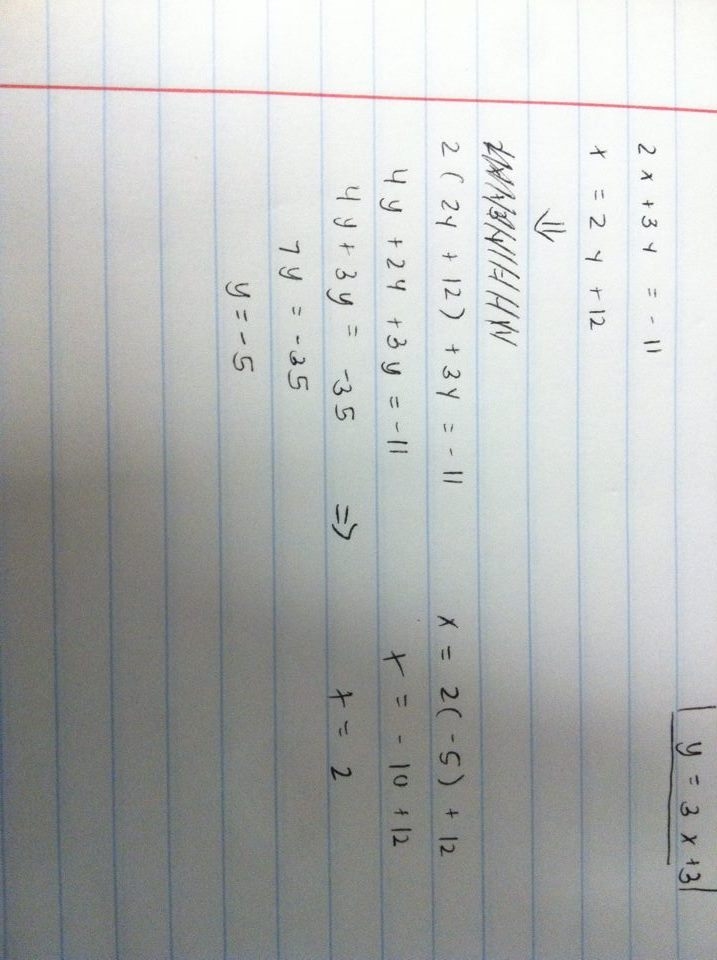 y = 3x+3
2x+3y = -11
x = 2y+12
⇓
2(2y+12)+3y = -11
4y+24+3y = -11
4y+3y = -35 ⇒
7y = -35
y = -5
x = 2(-5)+12
x = -10+12
x = 2